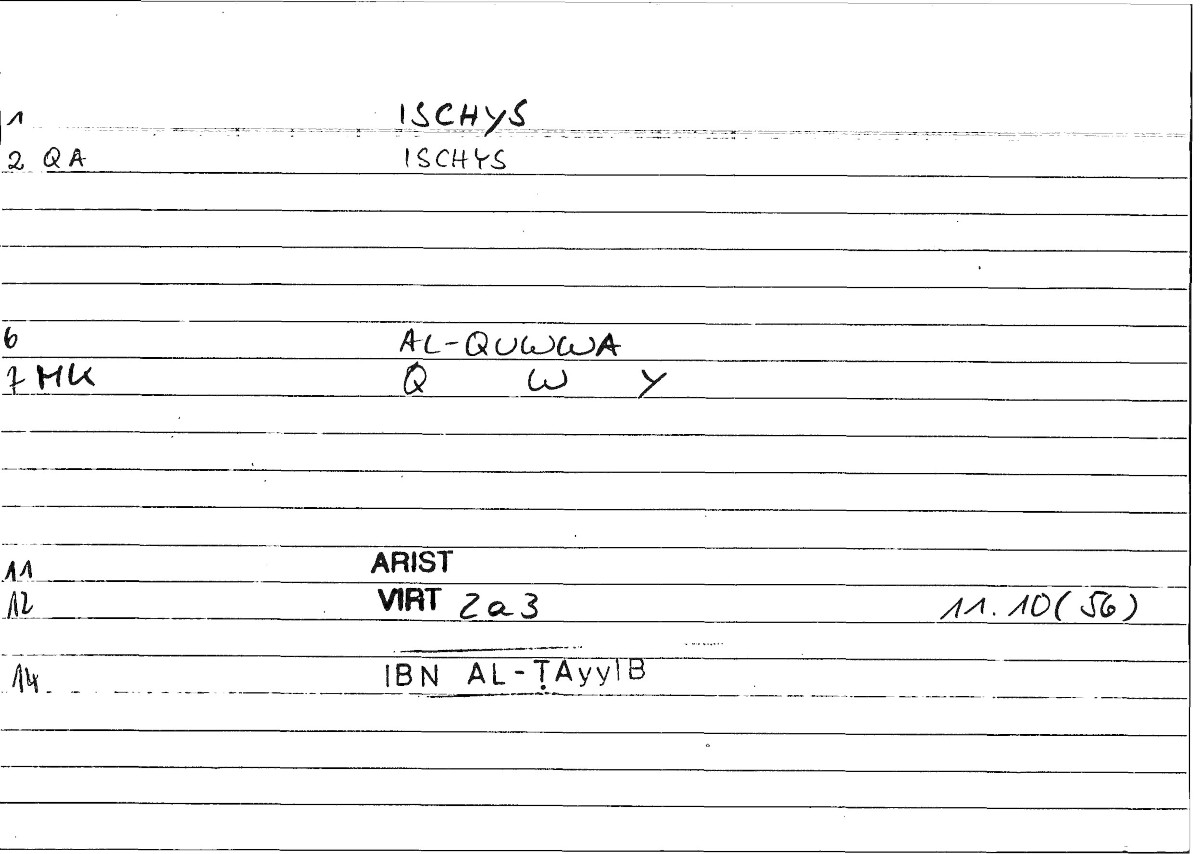 1 ISCHYS
2 QA ISCHYS
6 AL-QUWWA
7 MK Q W Y
11 ARIST
12 VIRT 2a3 11.10(56)
14 IBN AL-ṬAyyIB